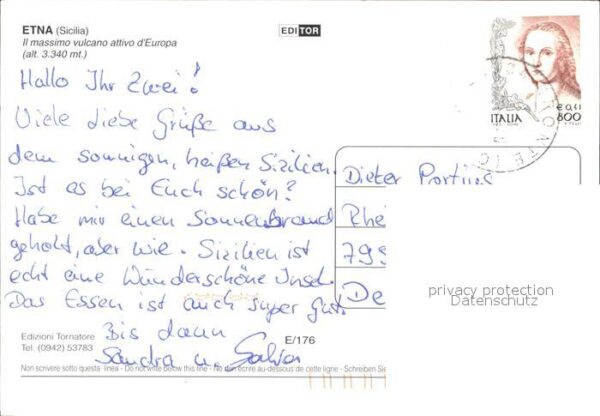 ETNA (Sicilia)
Il massimo vulcano attivo d'Europa
(alt. 3.340 mt.)
EDITOR
Hallo Ihr Zwei!
Viele liebe Grüße aus
dem sonnigen, heißen Sizilien.
Ist es bei Euch schön?
Habe mir einen Sonnenbrand
geholt, aber wie. Sizilien ist
echt eine Wunderschöne Insel.
Das Essen ist auch super gut.
Bis dann
Sandra u.
€ 0,41
ITALIA 800
Dieter
Rhei
799
De
privacy protection
Datenschutz
Edizioni Tornatore
Tel. (0942) 53783
E/176
Non scrivere sotto questa linea - Do not write below this line - Ne rien écrire au-dessous de cette ligne - Schreiben Sie